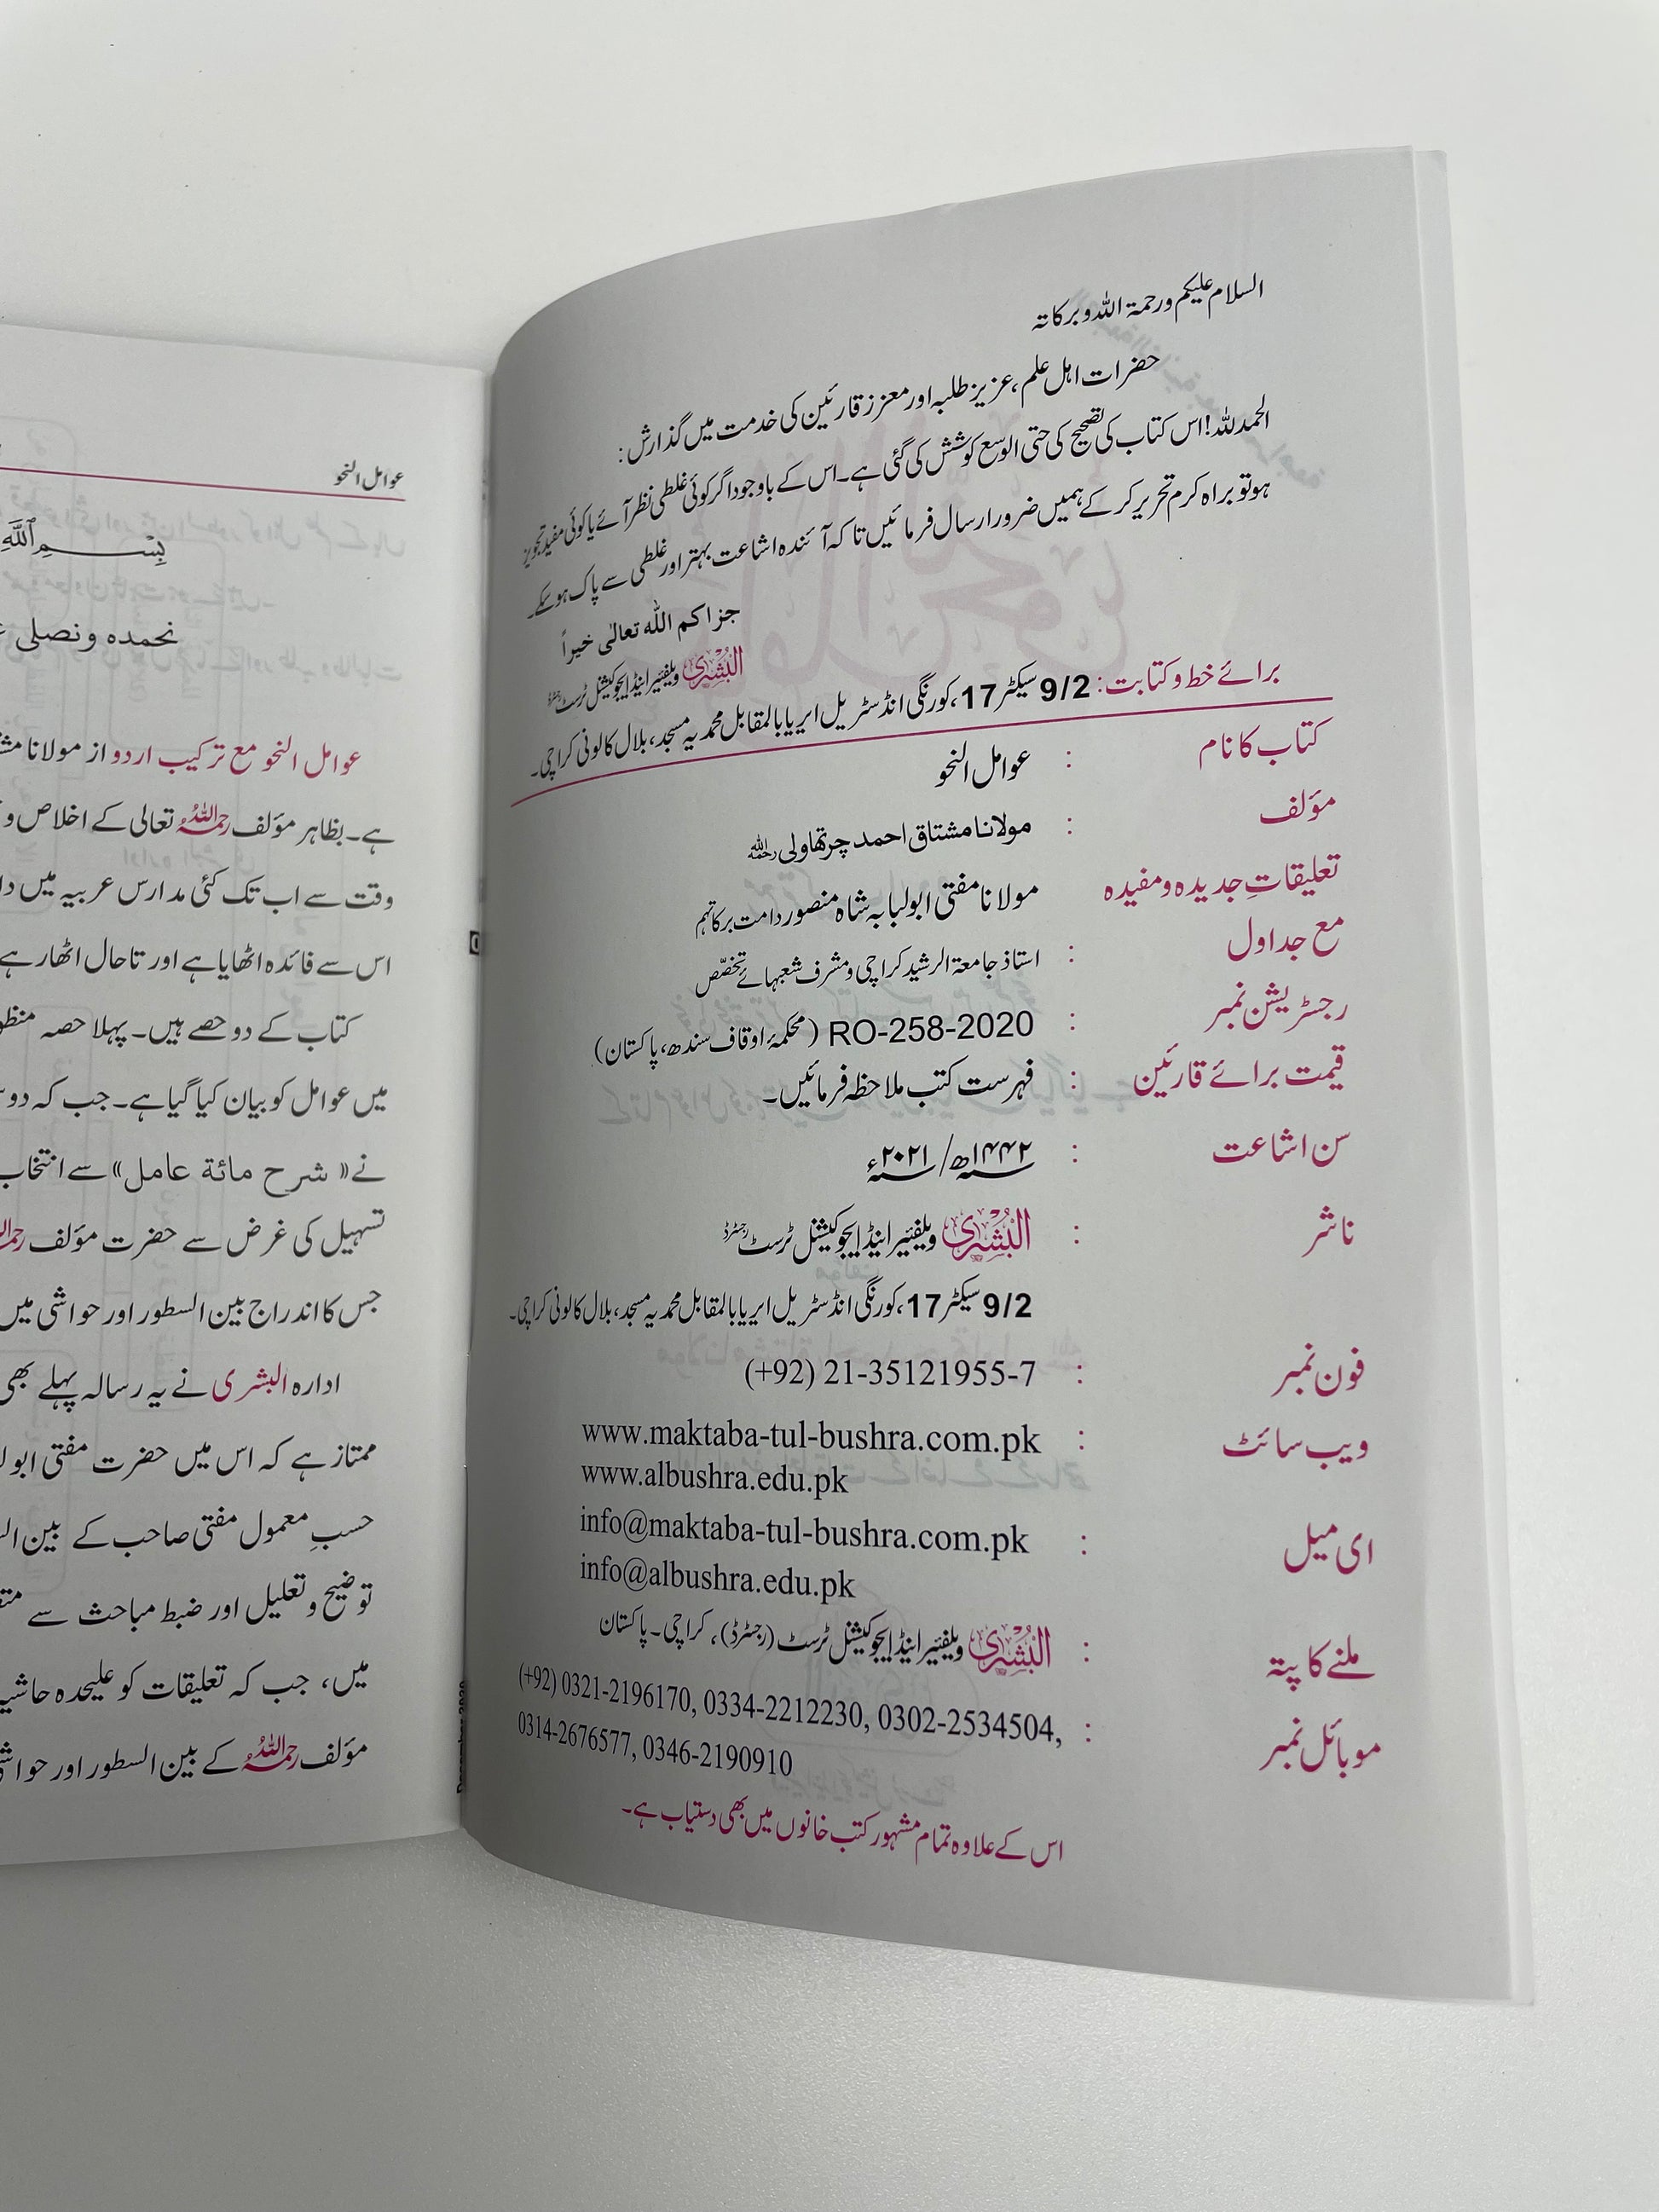 السلام علیکم ورحمۃ اللہ وبرکاتہ
حضرات اہل علم، عزیز طلبہ اور معزز قارئین کی خدمت میں گذارش:
الحمدللہ! اس کتاب کی تصحیح کی حتی الوسع کوشش کی گئی ہے۔ اس کے باوجود اگر کوئی غلطی نظر آئے یا کوئی مفید تجویز
ہو تو براہ کرم تحریر کر کے ہمیں ضرور ارسال فرمائیں تاکہ آئندہ اشاعت بہتر اور غلطی سے پاک ہوسکے۔
جزاکم اللہ تعالٰی خیراً
البُشریٰ ویلفیئر اینڈ ایجوکیشنل ٹرسٹ رجسٹرڈ
برائے خط و کتابت: 9/2 سیکٹر 17، کورنگی انڈسٹریل ایریا بالمقابل محمدیہ مسجد، بلال کالونی کراچی۔
کتاب کا نام : عوامل النحو
مؤلف : مولانا مشتاق احمد چرتھاولی رحمہ اللہ
تعلیقاتِ جدیدہ و مفیدہ مولانا مفتی ابولبابہ شاہ منصور دامت برکاتہم
مع جداول : استاذ جامعۃ الرشید کراچی و مشرف شعبہائے تخصّص
رجسٹریشن نمبر : RO-258-2020 (محکمۂ اوقاف سندھ، پاکستان)
قیمت برائے قارئین : فہرست کتب ملاحظہ فرمائیں۔
سن اشاعت : ۱۴۴۲ھ/ ۲۰۲۱ء
ناشر : البُشریٰ ویلفیئر اینڈ ایجوکیشنل ٹرسٹ رجسٹرڈ
9/2 سیکٹر 17، کورنگی انڈسٹریل ایریا بالمقابل محمدیہ مسجد، بلال کالونی کراچی۔
فون نمبر : (+92) 21-35121955-7
ویب سائٹ : www.maktaba-tul-bushra.com.pk
www.albushra.edu.pk
ای میل : info@maktaba-tul-bushra.com.pk
info@albushra.edu.pk
ملنے کا پتہ : البُشریٰ ویلفیئر اینڈ ایجوکیشنل ٹرسٹ (رجسٹرڈ)، کراچی۔ پاکستان
موبائل نمبر : (+92) 0321-2196170, 0334-2212230, 0302-2534504,
0314-2676577, 0346-2190910
اس کے علاوہ تمام مشہور کتب خانوں میں بھی دستیاب ہے۔
عوامل النحو
بِسْمِ اللّٰهِ
نحمدہ ونصلی
عوامل النحو مع ترکیب اردو از مولانا
ہے۔ بظاہر مؤلف رحمہ اللہ تعالی کے اخلاص و
وقت سے اب تک کئی مدارس عربیہ میں
اس سے فائدہ اٹھایا ہے اور تاحال اٹھا رہے
کتاب کے دو حصے ہیں۔ پہلا حصہ
میں عوامل کو بیان کیا گیا ہے۔ جب کہ
نے «شرح مائة عامل» سے
تسہیل کی غرض سے حضرت مؤلف
جس کا اندراج بین السطور اور حواشی میں
ادارہ البشری نے یہ رسالہ پہلے بھی
ممتاز ہے کہ اس میں حضرت مفتی
حسبِ معمول مفتی صاحب کے بین
توضیح و تعلیل اور ضبط مباحث سے
میں، جب کہ تعلیقات کو علیحدہ
مؤلف رحمہ اللہ کے بین السطور اور